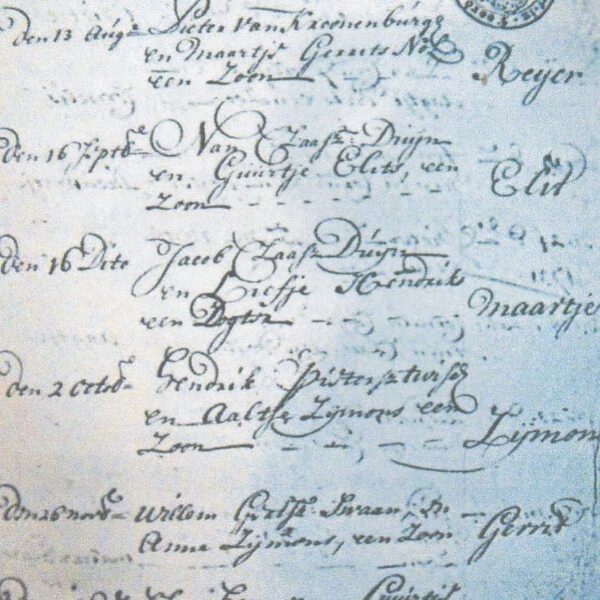 den 13 Aug= Pieter van Kroonenburg
en maartje Gerrits
een Zoon Reijer
den 16 Septbe= Nan Claasz Duijn
en Guurtje Elits, een Elit
Zoon
den 16 Dito Jacob Claasz Duijn
en Liefje Hendrik
een Dogter maartje
den 2 octobe= Hendrik Pietersz
en Aaltje Zijmons een
Zoon Zijmon
den 26 novbe= Willem Swaan, en
Anne Zijmons, een Zoon Gerrit